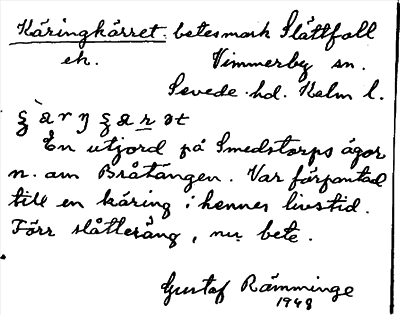 Käringkärret betesmark Slättfall
ek. Vimmerby sn.
Sevede hd. Kalm l.
En utjord på Smedstorps ägor
n. om Bråtängen. Var förpantad
till en käring i hennes livstid.
Förr slåtteräng, nu bete.
Gustaf Rämminge
1948